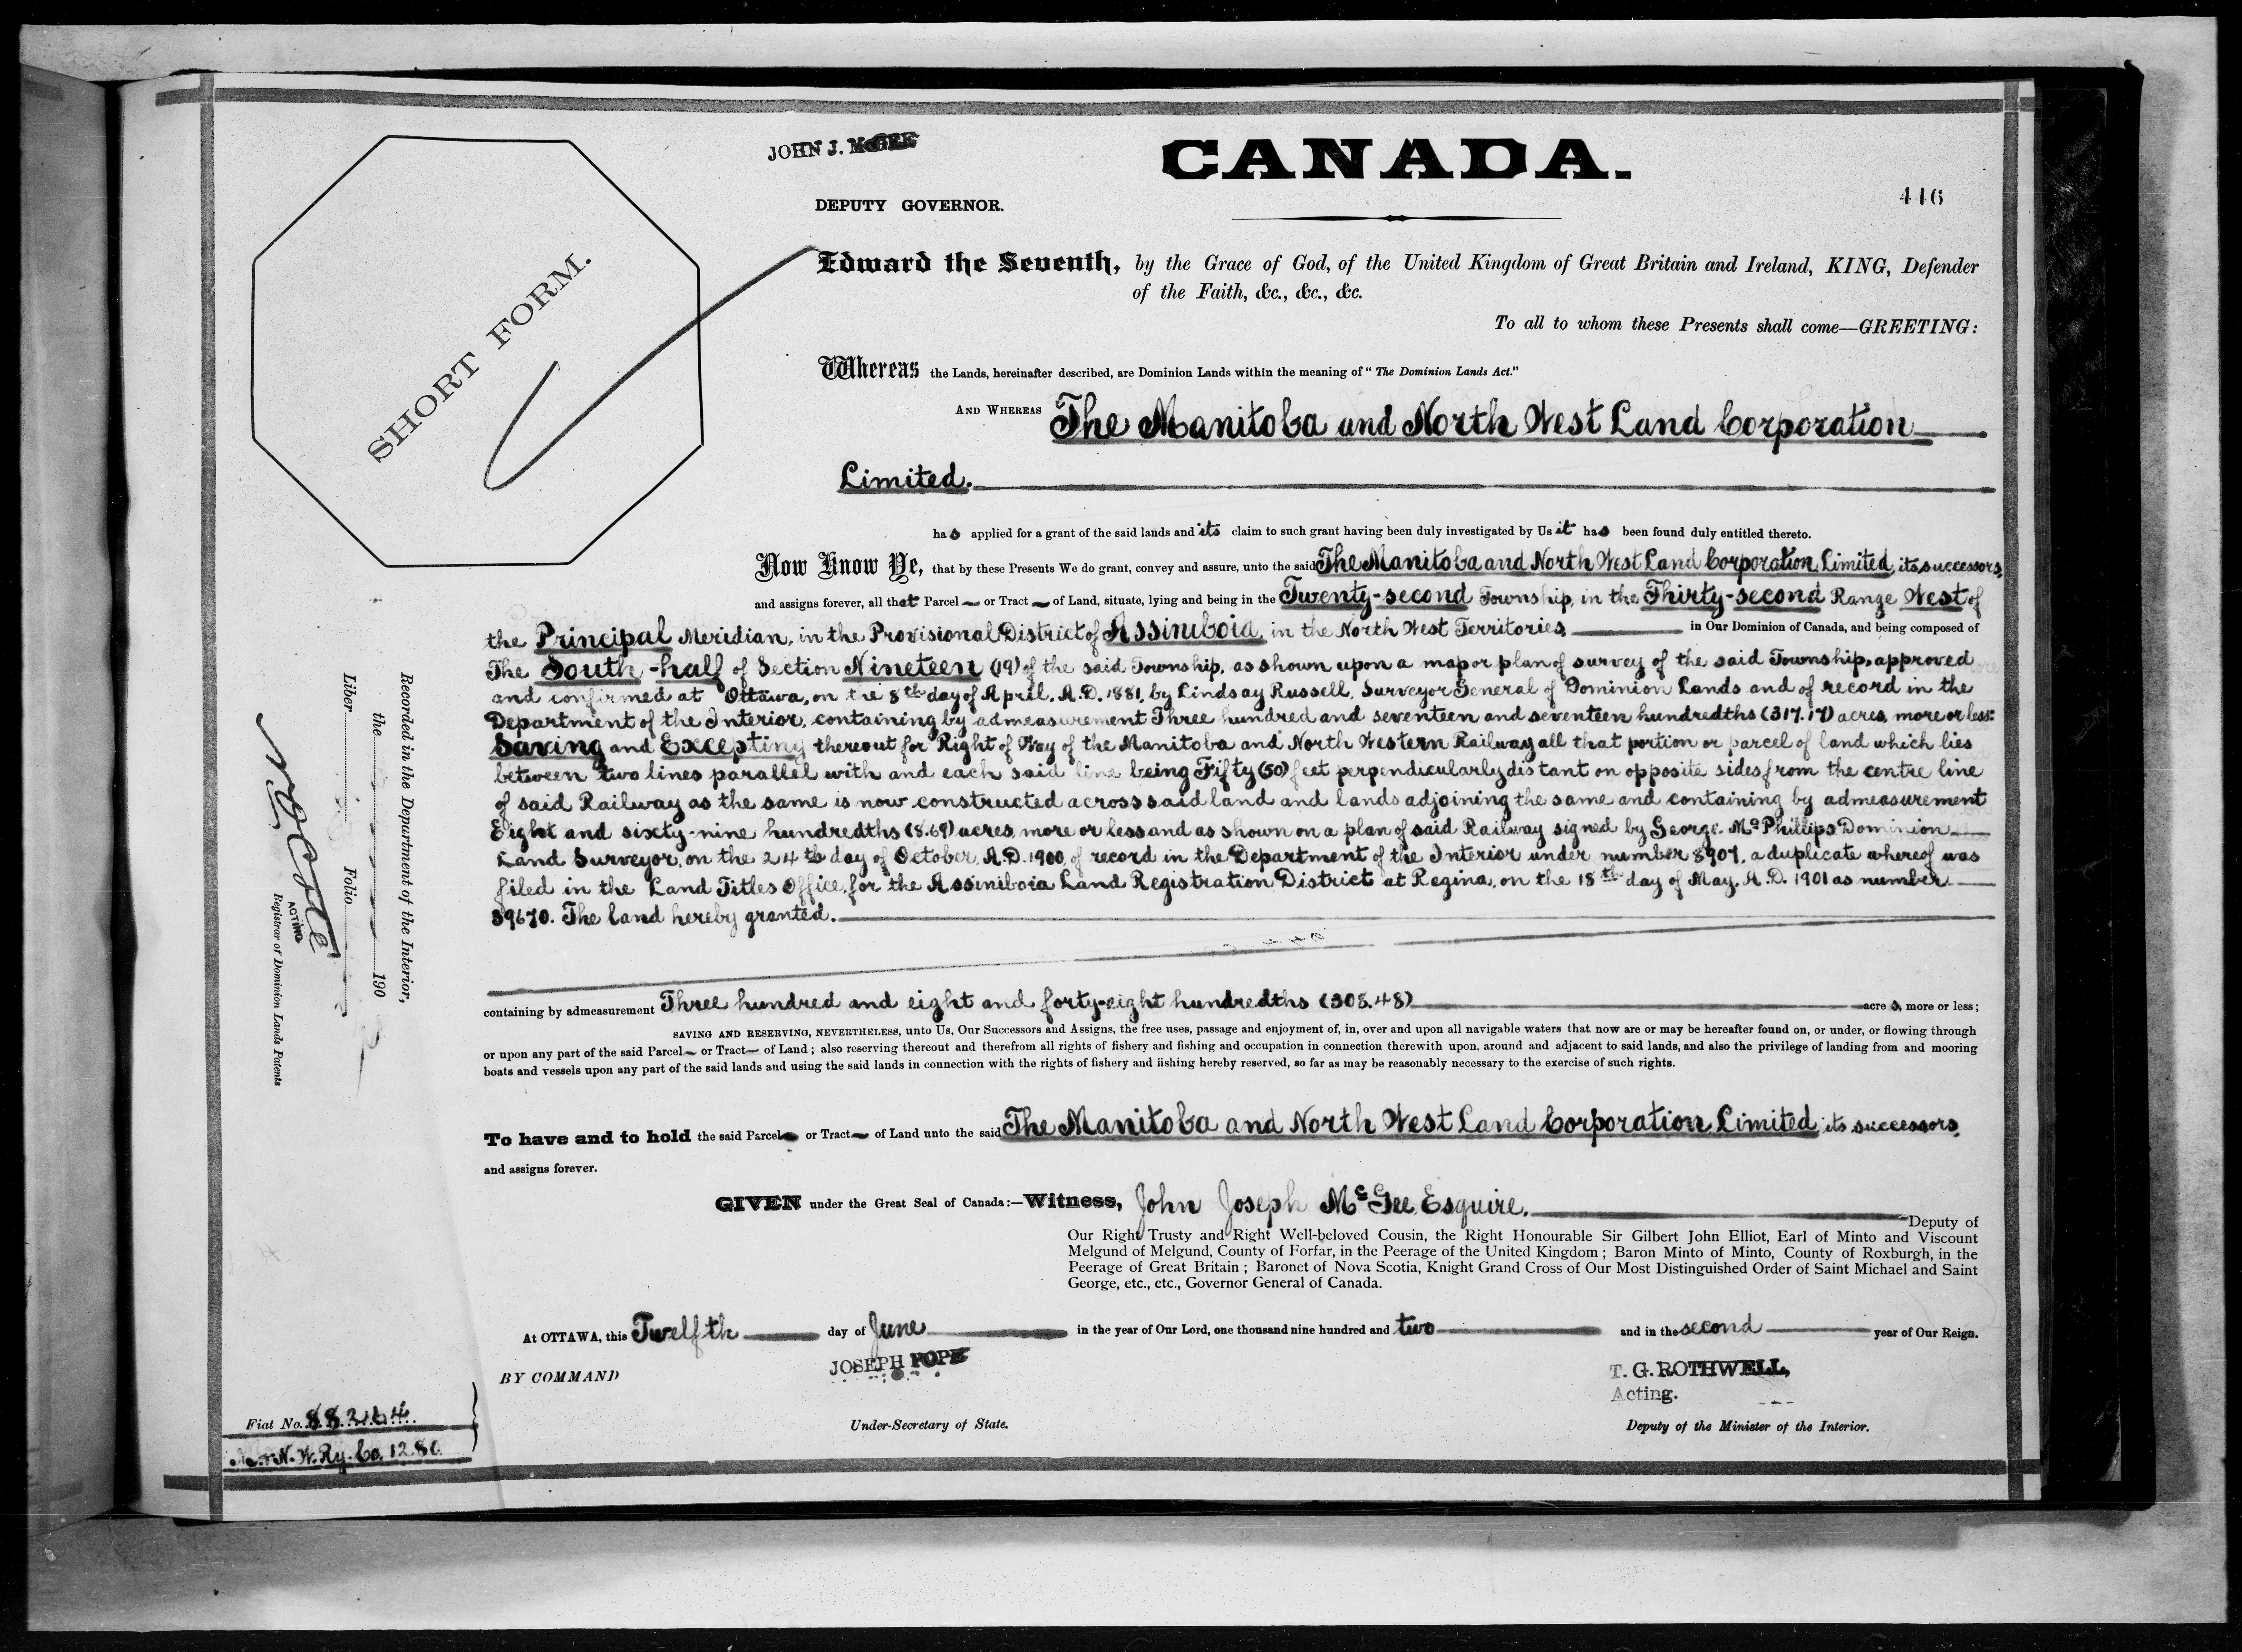 JOHN J. McGEE
CANADA.
DEPUTY GOVERNOR.
446
SHORT FORM.
Edward the Seventh, by the Grace of God, of the United Kingdom of Great Britain and Ireland, KING, Defender
of the Faith, &c., &c., &c.
To all to whom these Presents shall come—GREETING:
Whereas the Lands, hereinafter described, are Dominion Lands within the meaning of "The Dominion Lands Act."
AND WHEREAS The Manitoba and North West Land Corporation
Limited.
has applied for a grant of the said lands and its claim to such grant having been duly investigated by Us it has been found duly entitled thereto.
Now Know Ye, that by these Presents We do grant, convey and assure, unto the said The Manitoba and North West Land Corporation Limited, its successors,
and assigns forever, all that Parcel or Tract of Land, situate, lying and being in the Twenty-second Township, in the Thirty-second Range West of
the Principal Meridian, in the Provisional District of Assiniboia, in the North West Territories, in Our Dominion of Canada, and being composed of
The South-half of Section Nineteen (19) of the said Township, as shown upon a map or plan of survey of the said Township, approved
and confirmed at Ottawa, on the 8th day of April, A.D. 1881, by Lindsay Russell, Surveyor General of Dominion Lands and of record in the
Department of the Interior, containing by admeasurement Three hundred and seventeen and seventeen hundredths (317.17) acres, more or less:
Saving and Excepting thereout for Right of Way of the Manitoba and North Western Railway all that portion or parcel of land which lies
between two lines parallel with and each said line being Fifty (50) feet perpendicularly distant on opposite sides from the centre line
of said Railway as the same is now constructed across said land and lands adjoining the same and containing by admeasurement
Eight and sixty-nine hundredths (8.69) acres, more or less and as shown on a plan of said Railway signed by George Mc Phillips Dominion
Land Surveyor, on the 24th day of October, A.D. 1900, of record in the Department of the Interior under number 8907, a duplicate whereof was
filed in the Land Titles Office, for the Assiniboia Land Registration District at Regina, on the 18th day of May, A.D. 1901 as number
39670. The land hereby granted.
containing by admeasurement Three hundred and eight and forty-eight hundredths (308.48) acres, more or less;
SAVING AND RESERVING, NEVERTHELESS, unto Us, Our Successors and Assigns, the free uses, passage and enjoyment of, in, over and upon all navigable waters that now are or may be hereafter found on, or under, or flowing through
or upon any part of the said Parcel or Tract of Land; also reserving thereout and therefrom all rights of fishery and fishing and occupation in connection therewith upon, around and adjacent to said lands, and also the privilege of landing from and mooring
boats and vessels upon any part of the said lands and using the said lands in connection with the rights of fishery and fishing hereby reserved, so far as may be reasonably necessary to the exercise of such rights.
To have and to hold the said Parcel or Tract of Land unto the said The Manitoba and North West Land Corporation Limited its successors,
and assigns forever.
GIVEN under the Great Seal of Canada:—Witness, John Joseph McGee, Esquire, Deputy of
Our Right Trusty and Right Well-beloved Cousin, the Right Honourable Sir Gilbert John Elliot, Earl of Minto and Viscount
Melgund of Melgund, County of Forfar, in the Peerage of the United Kingdom; Baron Minto of Minto, County of Roxburgh, in the
Peerage of Great Britain; Baronet of Nova Scotia, Knight Grand Cross of Our Most Distinguished Order of Saint Michael and Saint
George, etc., etc., Governor General of Canada.
At OTTAWA, this Twelfth day of June in the year of Our Lord, one thousand nine hundred and two and in the second year of Our Reign.
BY COMMAND
JOSEPH POPE
Under-Secretary of State.
T. G. ROTHWELL,
Acting.
Deputy of the Minister of the Interior.
Recorded in the Department of the Interior,
the 190
Liber Folio
ACTING
Registrar of Dominion Lands Patents
Fiat No. 88264
N. W. Ry. Co. 1280